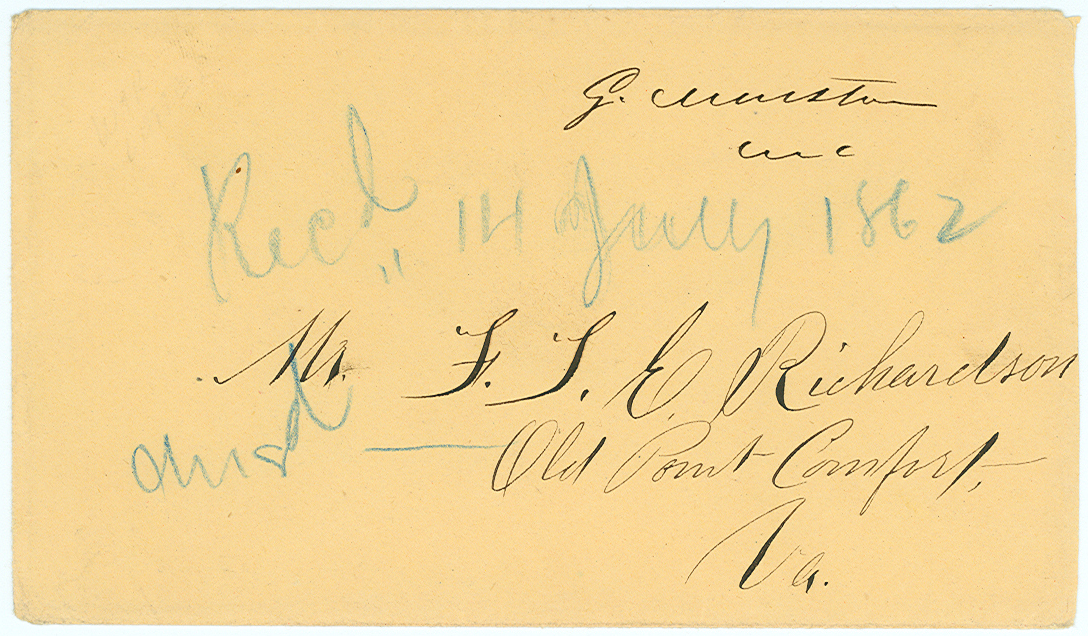 G. Marston
MC
Recd 14 July 1862
Mr. F. S. E. Richardson
Old Point Comfort,
Va.